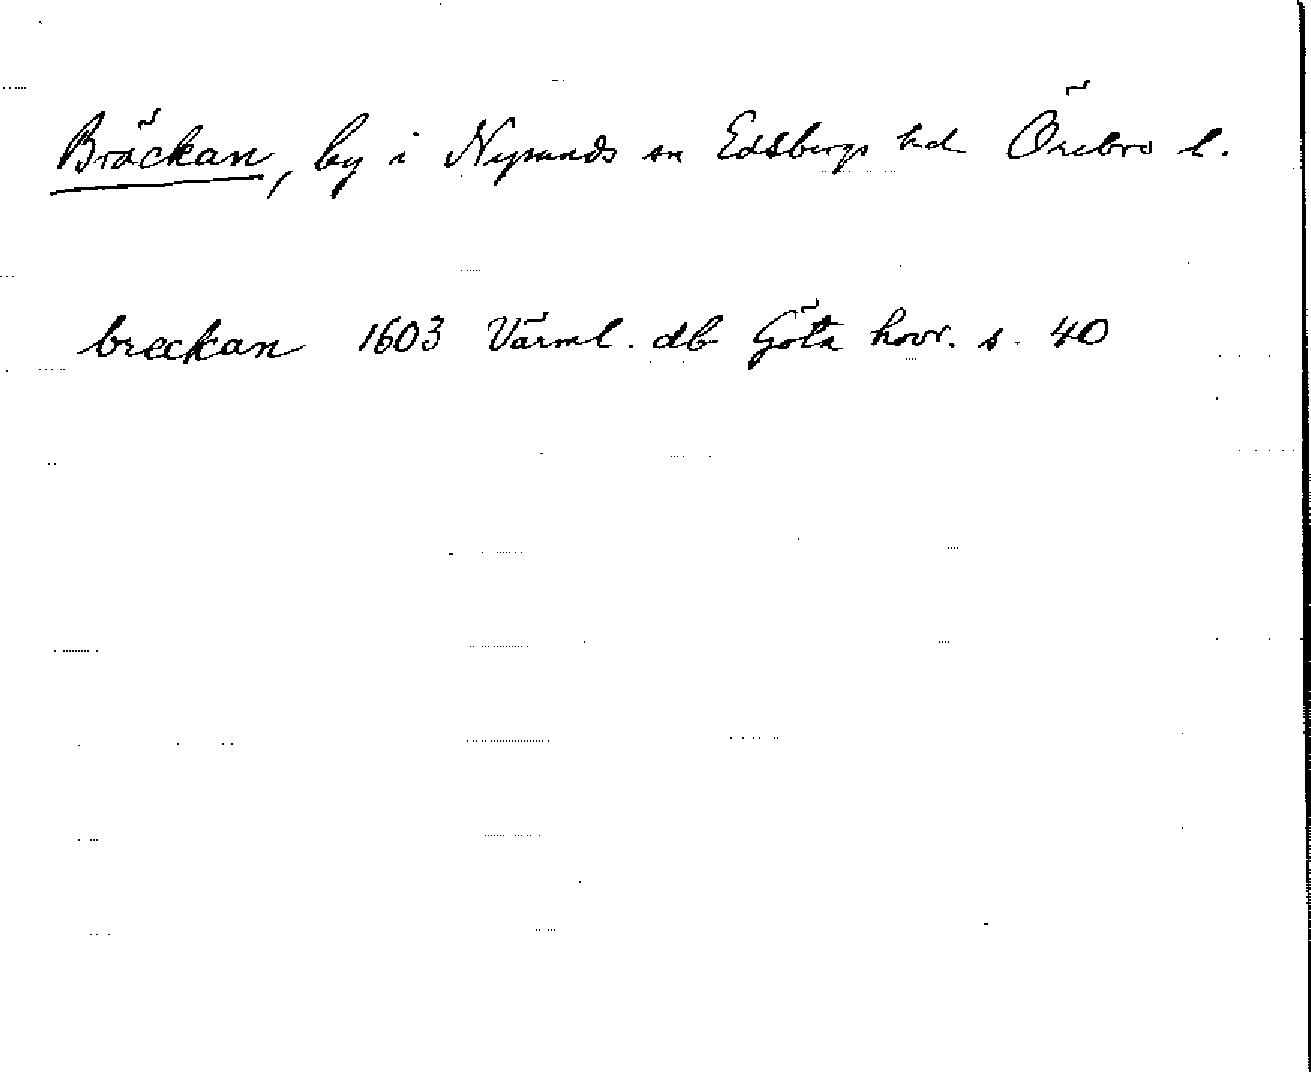 Bräckan, by i Nysunds sn Edsbergs hd Örebro l.
breckan 1603 Värml. db Göta hovr. s. 40